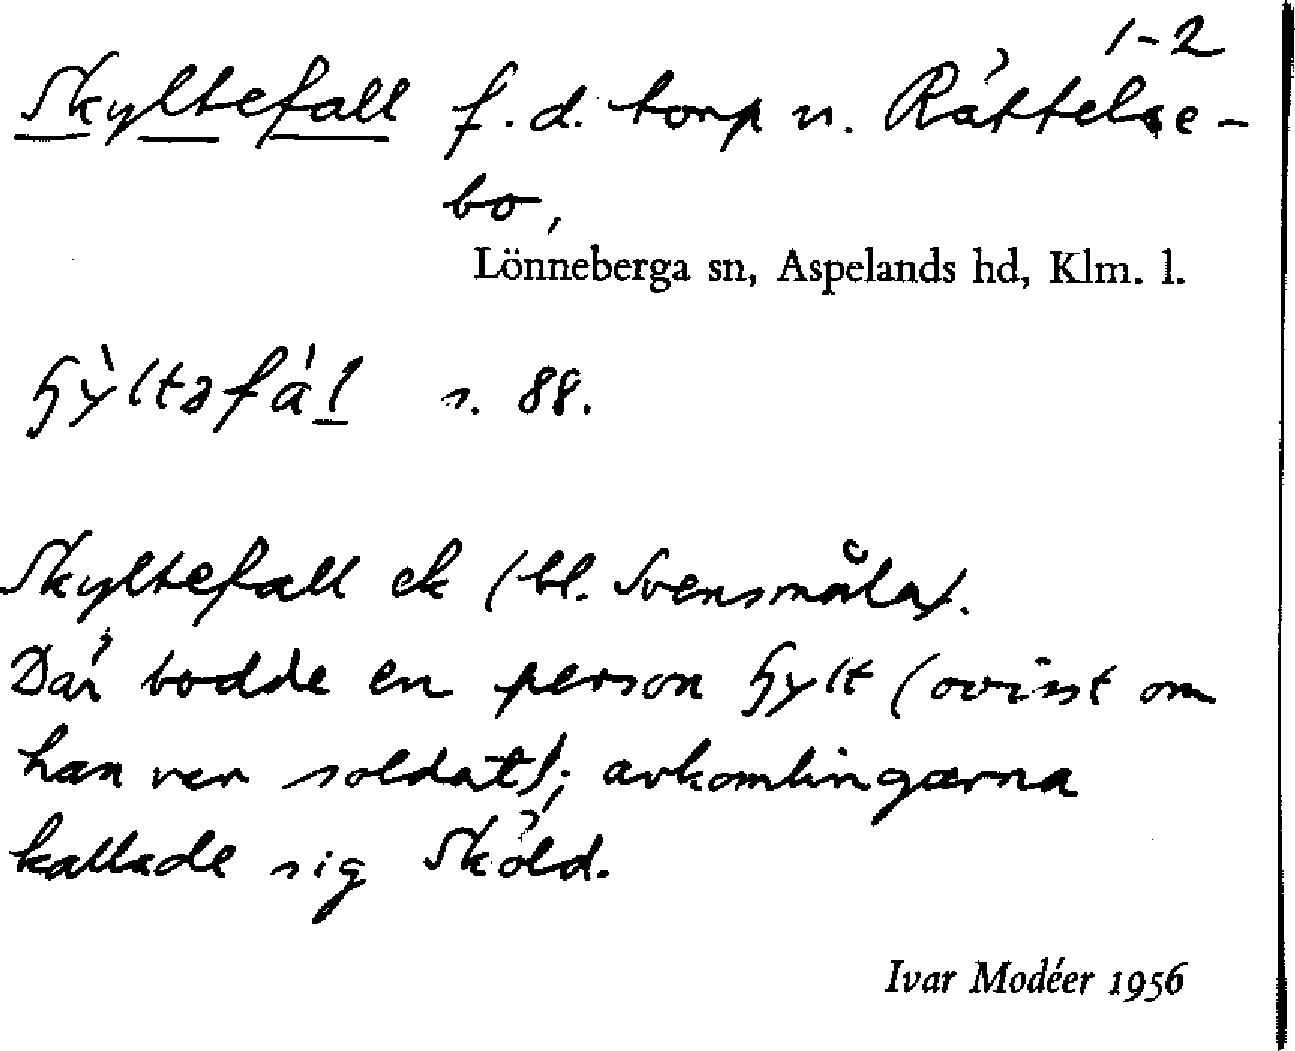 1-2
Skyltefall f.d. torp u. Rättelse-
bo,
Lönneberga sn, Aspelands hd, Klm. l.
ɧỳltəfál s. 88.
Skyltefall ek (bl. Svensmåla).
Där bodde en person ɧylt (ovisst om
han var soldat); avkomlingarna
kallade sig Sköld.
Ivar Modéer 1956